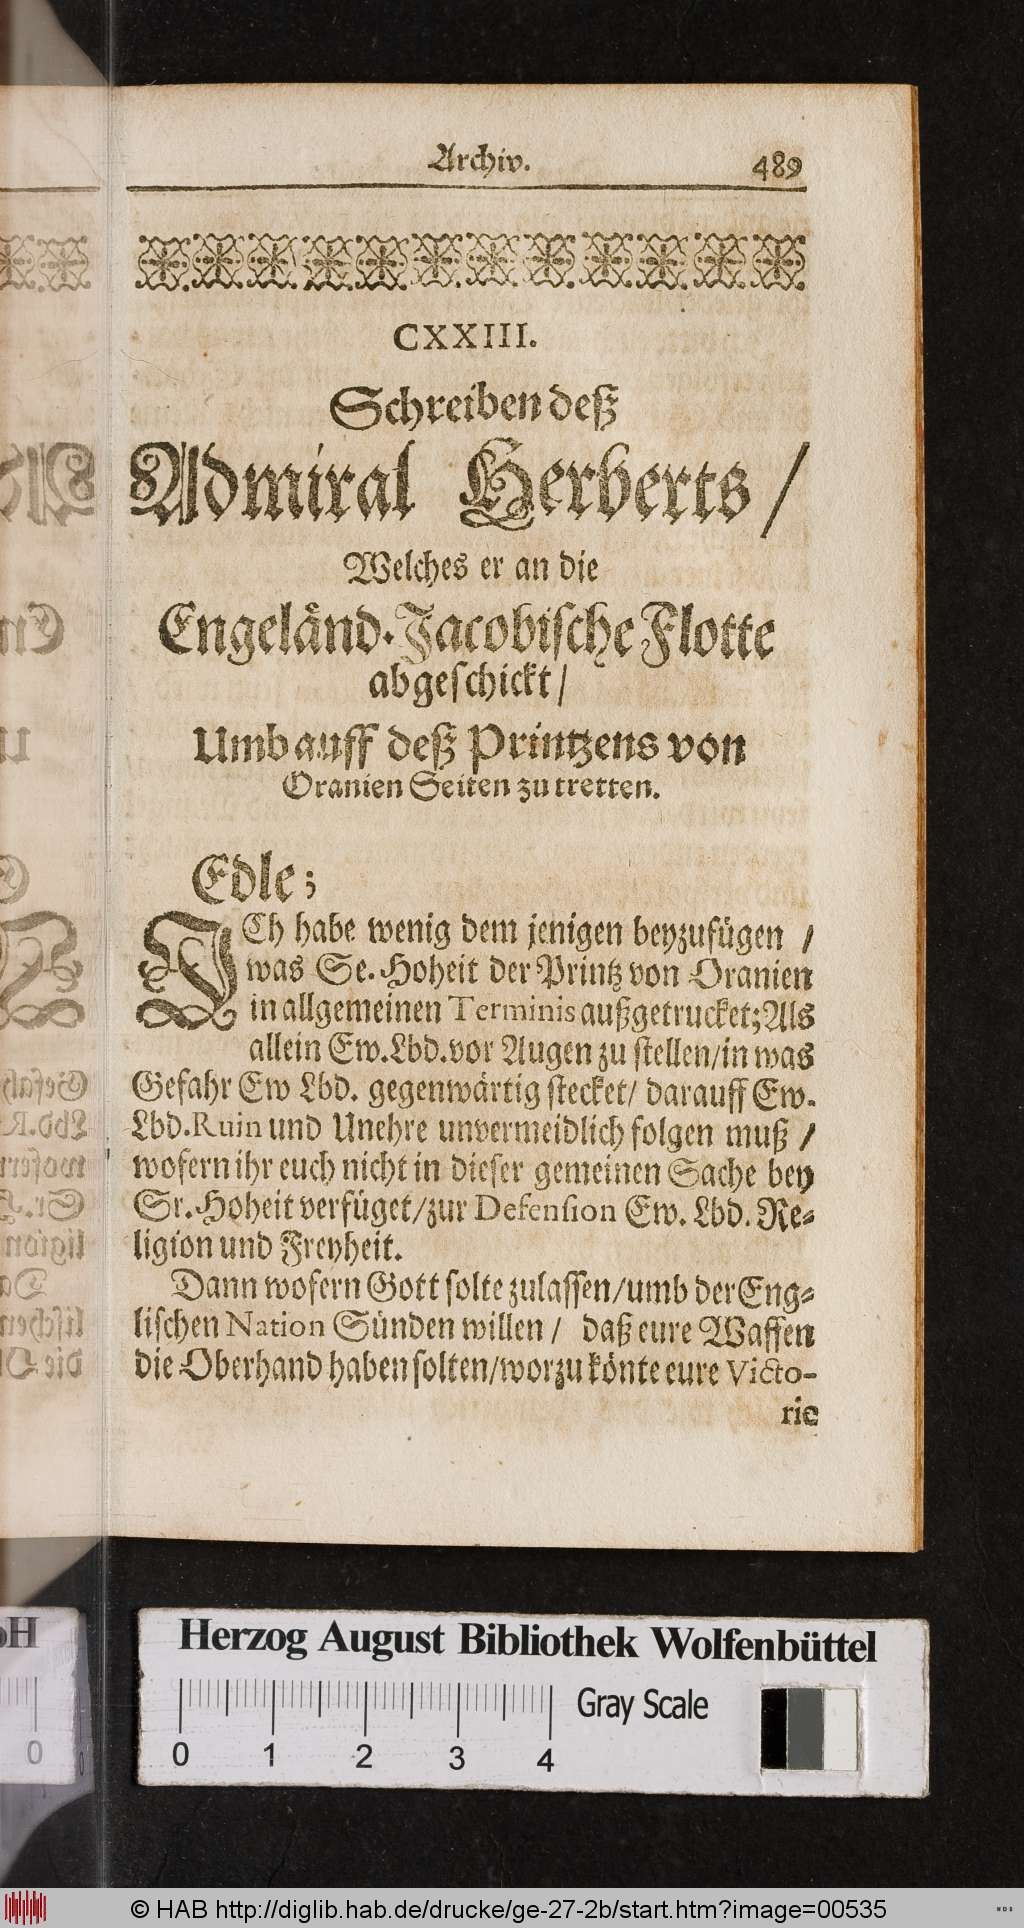 Archiv. 489
CXXIII.
Schreiben deß
Admiral Herberts /
Welches er an die
Engeländ-Jacobische Flotte
abgeschickt /
Umb auff deß Printzens von
Oranien Seiten zu tretten.
Edle;
ICh habe wenig dem jenigen beyzufügen /
was Se. Hoheit der Printz von Oranien
in allgemeinen Terminis außgetrucket; Als
allein Ew. Lbd. vor Augen zu stellen / in was
Gefahr Ew Lbd. gegenwärtig stecket / darauff Ew.
Lbd. Ruin und Unehre unvermeidlich folgen muß /
wofern ihr euch nicht in dieser gemeinen Sache bey
Sr. Hoheit verfüget / zur Defension Ew. Lbd. Re-
ligion und Freyheit.
Dann wofern Gott solte zulassen / umb der Eng-
lischen Nation Sünden willen / daß eure Waffen
die Oberhand haben solten / worzu könte eure Victo-
rie
Herzog August Bibliothek Wolfenbüttel
0 1 2 3 4 Gray Scale
© HAB http://diglib.hab.de/drucke/ge-27-2b/start.htm?image=00535